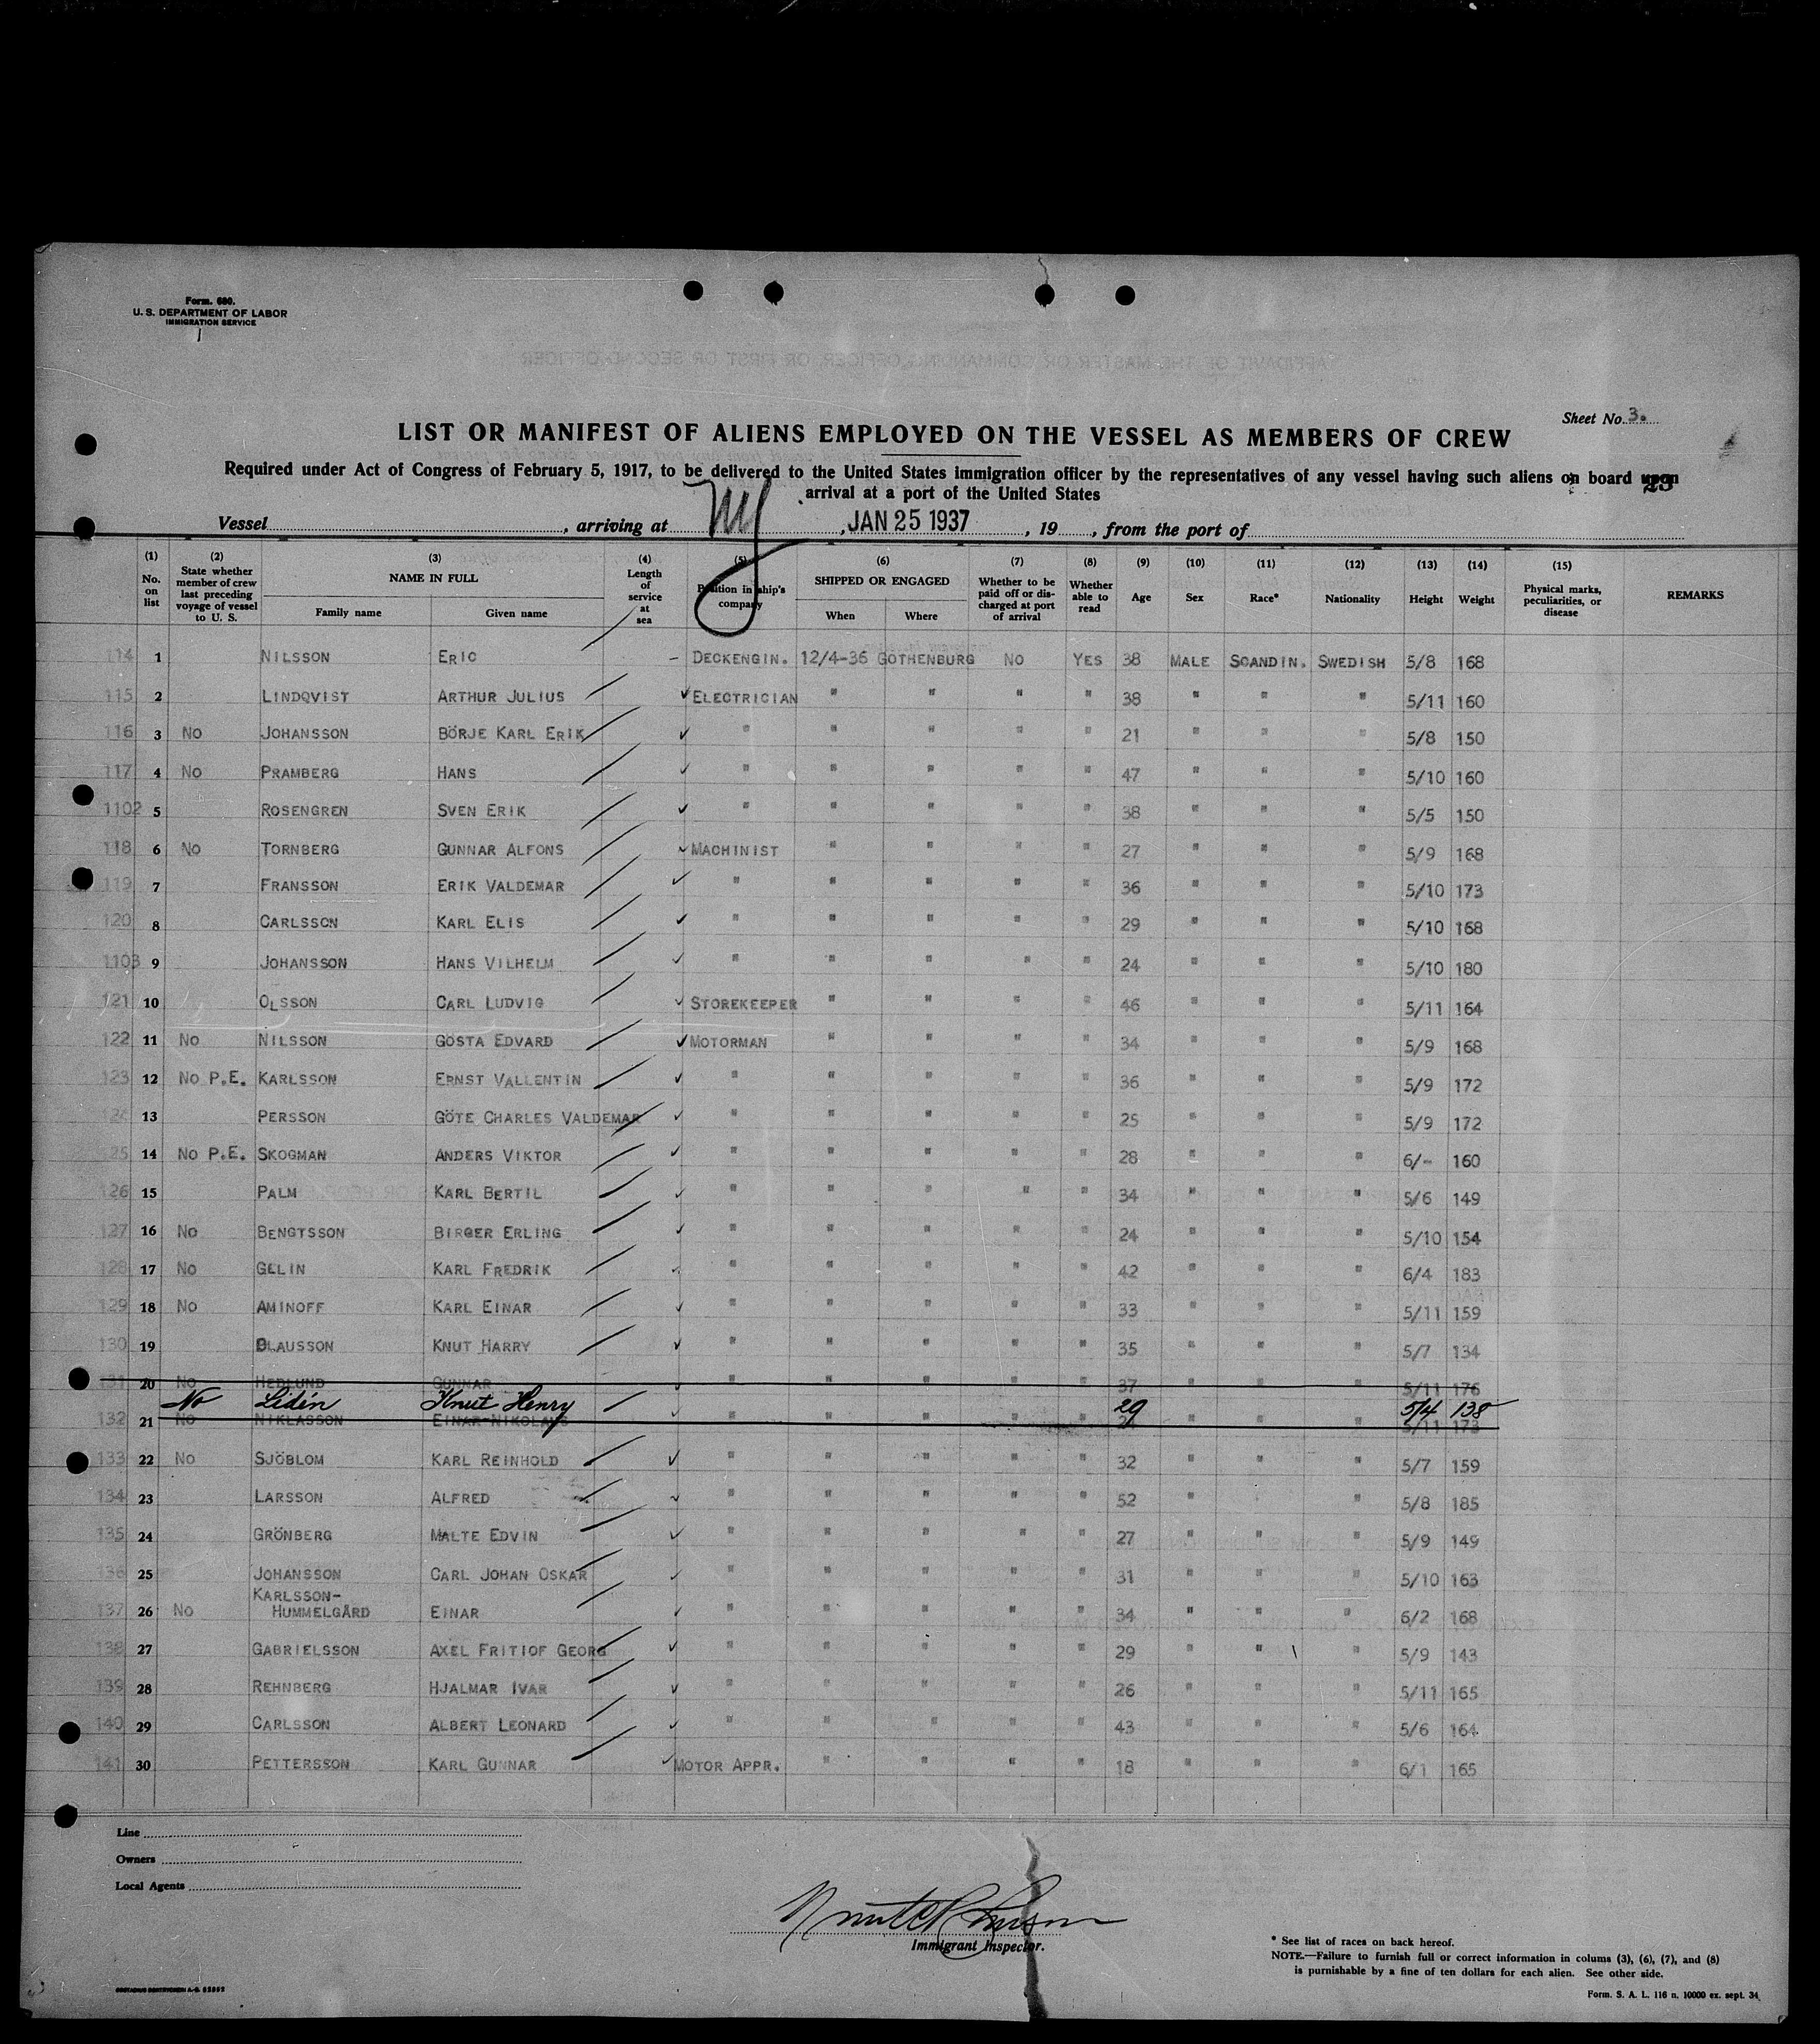 Form. 680.
U. S. DEPARTMENT OF LABOR
IMMIGRATION SERVICE
Sheet No. 3.
LIST OR MANIFEST OF ALIENS EMPLOYED ON THE VESSEL AS MEMBERS OF CREW
Required under Act of Congress of February 5, 1917, to be delivered to the United States immigration officer by the representatives of any vessel having such aliens on board upon
arrival at a port of the United States
23
Vessel, arriving at NY, JAN 25 1937, 19, from the port of
(1) No. on list (2) State whether member of crew last preceding voyage of vessel to U. S. (3) NAME IN FULL Family name Given name (4) Length of service at sea (5) Position in ship's company (6) SHIPPED OR ENGAGED When Where (7) Whether to be paid off or discharged at port of arrival (8) Whether able to read (9) Age (10) Sex (11) Race* (12) Nationality (13) Height (14) Weight (15) Physical marks, peculiarities, or disease REMARKS
114 1 NILSSON ERIC – DECKENGIN. 12/4-36 GOTHENBURG NO YES 38 MALE SCANDIN. SWEDISH 5/8 168
115 2 LINDQVIST ARTHUR JULIUS ✓ ELECTRICIAN " " " " 38 " " " 5/11 160
116 3 NO JOHANSSON BÖRJE KARL ERIK ✓ " " " " " 21 " " " 5/8 150
117 4 NO PRAMBERG HANS ✓ " " " " " 47 " " " 5/10 160
1102 5 ROSENGREN SVEN ERIK ✓ " " " " " 38 " " " 5/5 150
118 6 NO TORNBERG GUNNAR ALFONS ✓ MACHINIST " " " " 27 " " " 5/9 168
119 7 FRANSSON ERIK VALDEMAR ✓ " " " " " 36 " " " 5/10 173
120 8 CARLSSON KARL ELIS ✓ " " " " " 29 " " " 5/10 168
1103 9 JOHANSSON HANS VILHELM ✓ " " " " " 24 " " " 5/10 180
121 10 OLSSON CARL LUDVIG ✓ STOREKEEPER " " " " 46 " " " 5/11 164
122 11 NO NILSSON GÖSTA EDVARD ✓ MOTORMAN " " " " 34 " " " 5/9 168
123 12 NO P.E. KARLSSON ERNST VALLENTIN ✓ " " " " " 36 " " " 5/9 172
124 13 PERSSON GÖTE CHARLES VALDEMAR ✓ " " " " " 25 " " " 5/9 172
125 14 NO P.E. SKOGMAN ANDERS VIKTOR ✓ " " " " " 28 " " " 6/- 160
126 15 PALM KARL BERTIL ✓ " " " " " 34 " " " 5/6 149
127 16 NO BENGTSSON BIRGER ERLING ✓ " " " " " 24 " " " 5/10 154
128 17 NO GELIN KARL FREDRIK ✓ " " " " " 42 " " " 6/4 183
129 18 NO AMINOFF KARL EINAR ✓ " " " " " 33 " " " 5/11 159
130 19 OLAUSSON KNUT HARRY ✓ " " " " " 35 " " " 5/7 134
131 20 NO HEDLUND GUNNAR ✓ " " " " " 37 " " " 5/11 176
No Lidén Knut Henry 29 5/4 138
132 21 NO NIKLASSON EINAR NIKOLAUS ✓ " " " " " " " " 5/11 173
133 22 NO SJÖBLOM KARL REINHOLD ✓ " " " " " 32 " " " 5/7 159
134 23 LARSSON ALFRED ✓ " " " " " 52 " " 5/8 185
135 24 GRÖNBERG MALTE EDVIN ✓ " " " " " 27 " " " 5/9 149
136 25 JOHANSSON CARL JOHAN OSKAR ✓ " " " " " 31 " " " 5/10 163
137 26 NO KARLSSON-HUMMELGÅRD EINAR ✓ " " " " " 34 " " " 6/2 168
138 27 GABRIELSSON AXEL FRITIOF GEORG ✓ " " " " " 29 " " " 5/9 143
139 28 REHNBERG HJALMAR IVAR ✓ " " " " " 26 " " " 5/11 165
140 29 CARLSSON ALBERT LEONARD ✓ " " " " " 43 " " " 5/6 164
141 30 PETTERSSON KARL GUNNAR ✓ MOTOR APPR. " " " " 18 " " " 6/1 165
Line
Owners
Local Agents
Immigrant Inspector.
* See list of races on back hereof.
NOTE.—Failure to furnish full or correct information in colums (3), (6), (7), and (8)
is purnishable by a fine of ten dollars for each alien. See other side.
Form. S. A. L. 116 n. 10000 ex. sept. 34